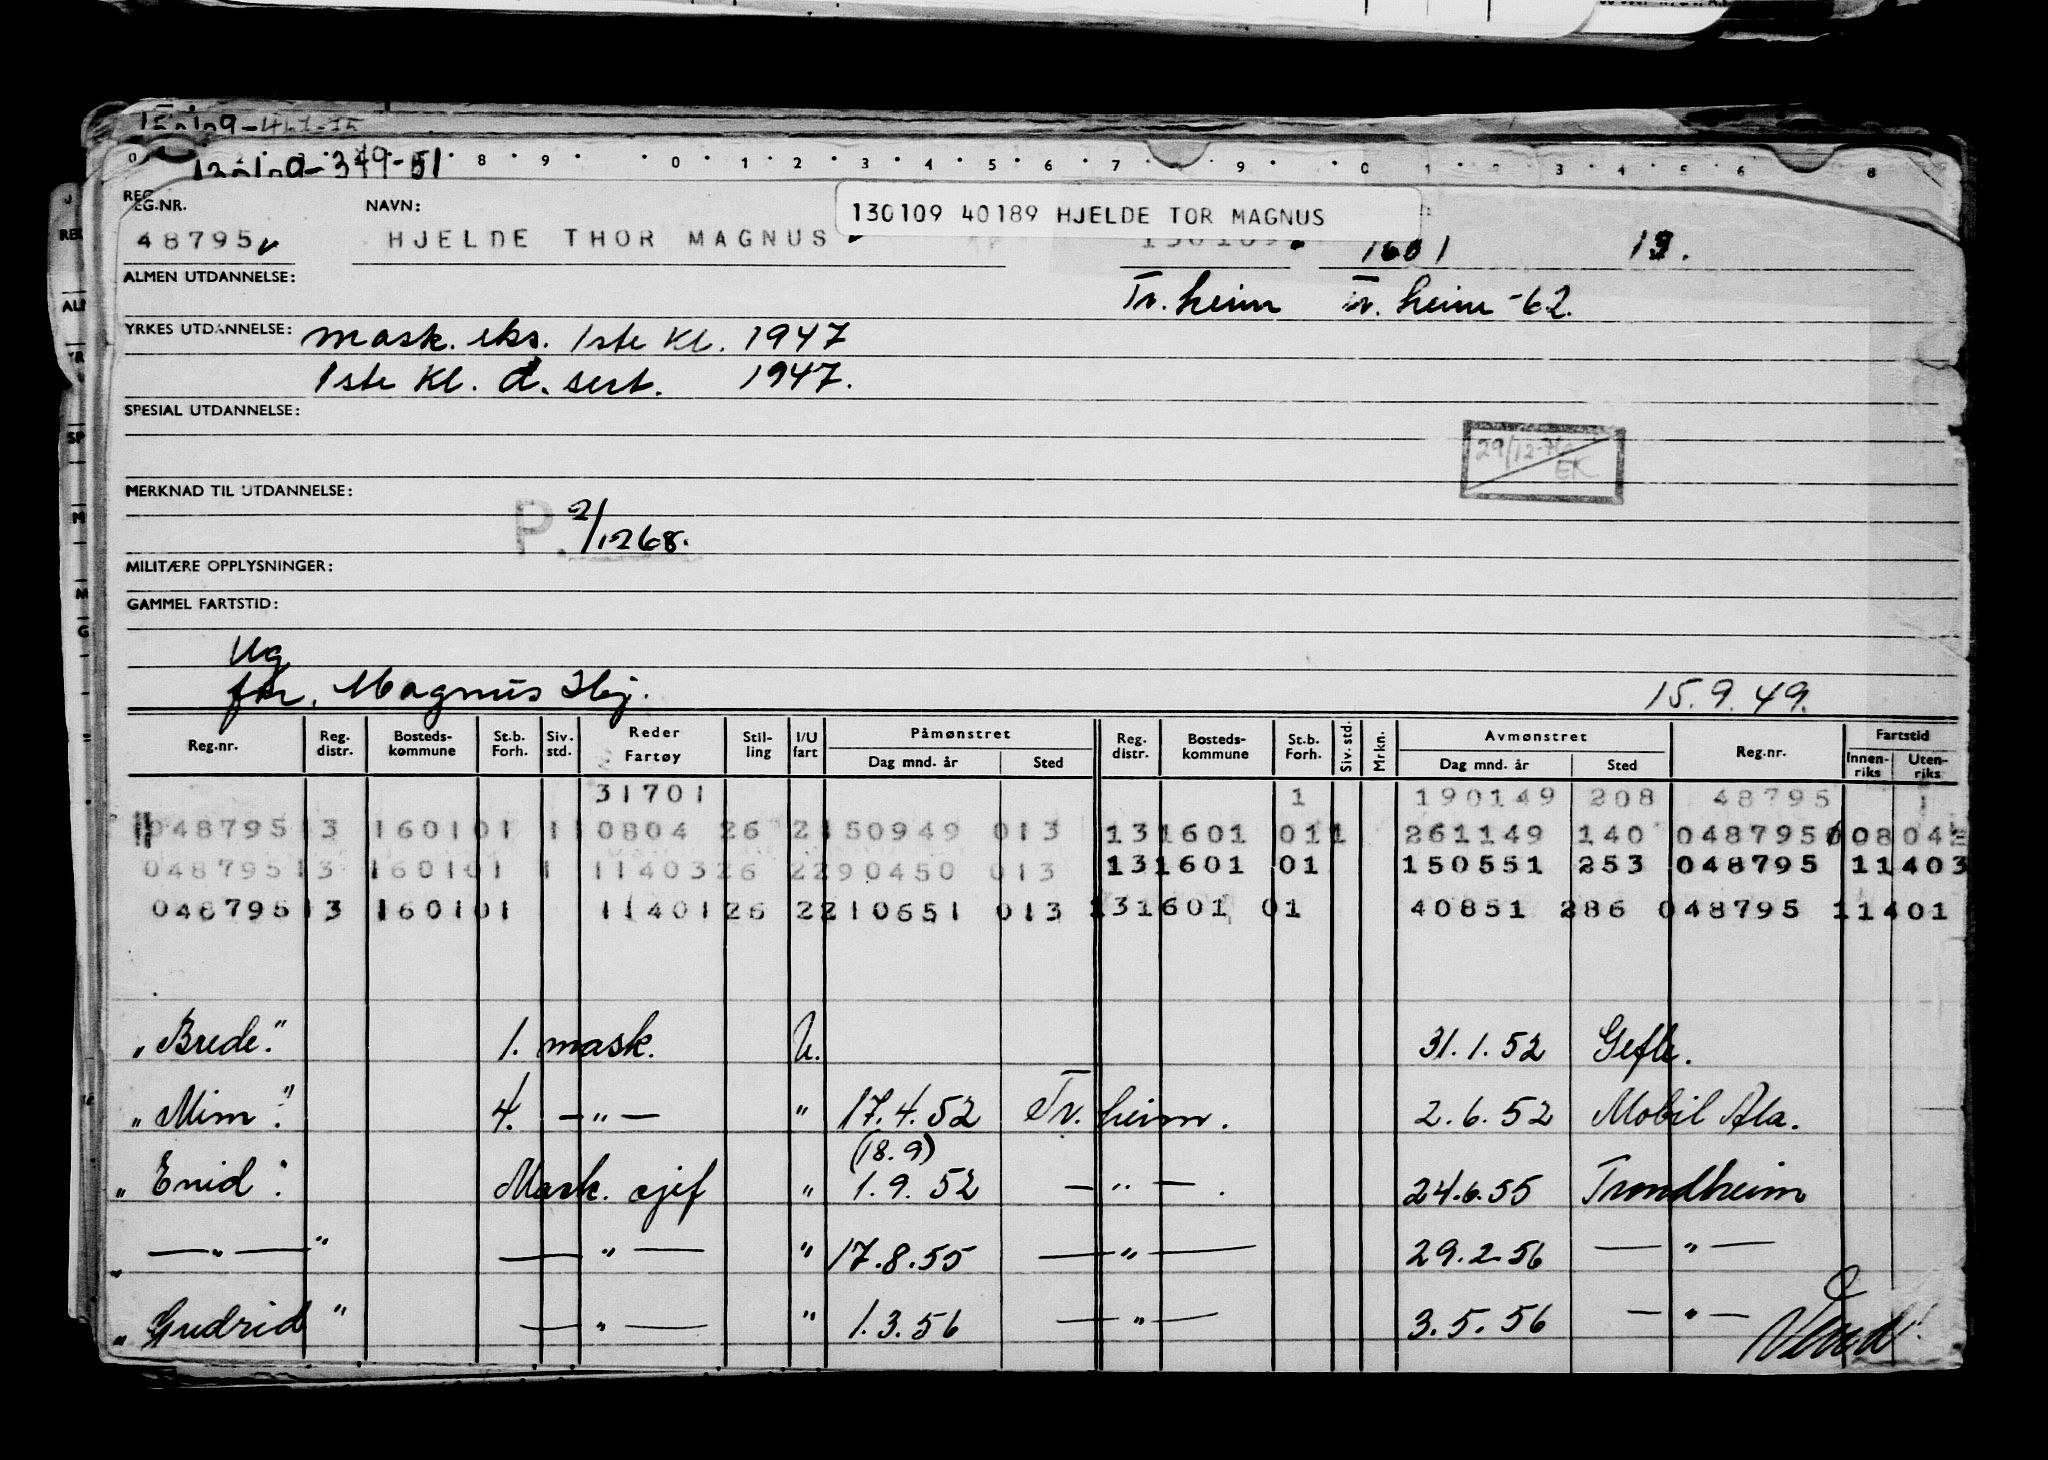 130109-349-51
REG.NR. NAVN: 130109 40189 HJELDE TOR MAGNUS
48795 HJELDE THOR MAGNUS 130109 1601 13.
ALMEN UTDANNELSE: Tr.heim Tr.heim -62
YRKES UTDANNELSE: mask. eks. 1ste kl. 1947
1ste kl. d. sert. 1947.
SPESIAL UTDANNELSE:
29/12-70 EK
MERKNAD TIL UTDANNELSE:
P. 2/1268.
MILITÆRE OPPLYSNINGER:
GAMMEL FARTSTID:
Ug
for. Magnus Hj. 15.9.49.
Reg.nr. Reg. distr. Bosteds-kommune St.b. Forh. Siv. std. Reder Fartøy Stil-ling I/U fart Påmønstret Dag mnd. år Sted Reg. distr. Bosteds-kommune St.b. Forh. Siv. std. Mrkn. Avmønstret Dag mnd. år Sted Reg.nr. Fartstid Innen-riks Uten-riks
31701 1 190149 208 48795 1
048795 13 1601 01 1 10804 26 2 150949 013 13 1601 01 1 261149 140 048795 0804
048795 13 1601 01 1 11403 26 2 290450 013 13 1601 01 150551 253 048795 11403
048795 13 1601 01 11401 26 2 210651 013 13 1601 01 40851 286 048795 11401
„Brede." 1. mask. U. 31.1.52 Gefle.
„Mim". 4. —"— " 17.4.52 Tr.heim. 2.6.52 Mobil Ala.
(18.9)
„Enid". Mask. sjef " 1.9.52 —"—. 24.6.55 Trondheim
„—"—" —"— " 17.8.55 —"— 29.2.56 —"—
„Gudrid" —"— " 1.3.56 —"— 3.5.56 —"—
Vend!